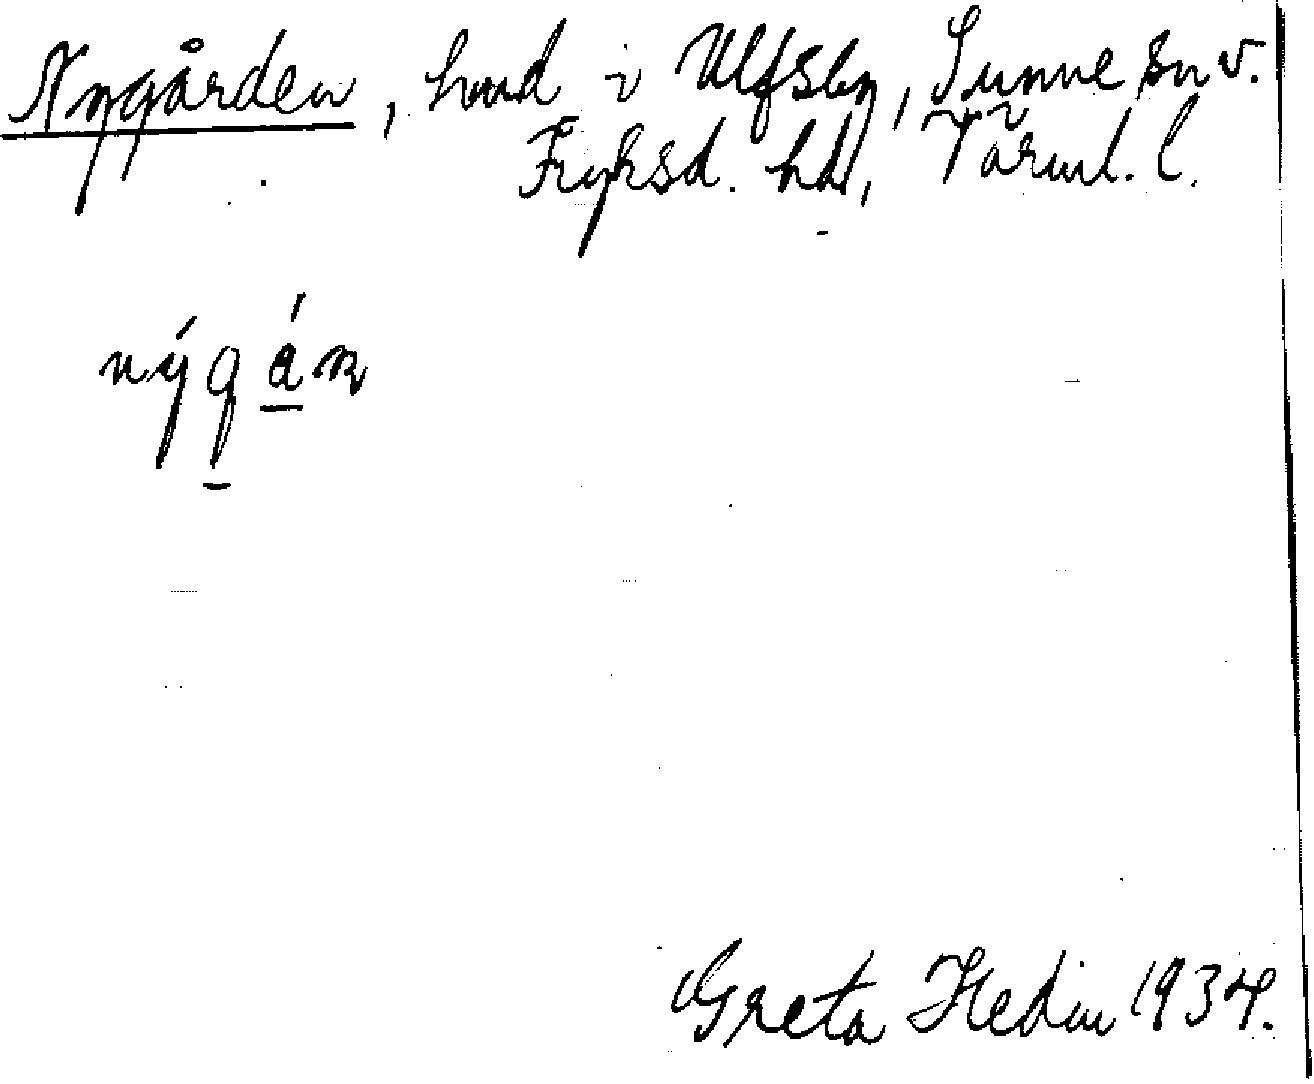 Nygården, hmd i Ulfsby, Sunne sn v.
Fryksd. hd, Värml. l.
nýgán
Greta Hedin 1934.